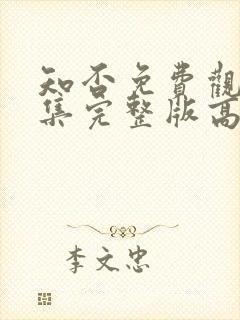 知否免費觀
集完整版高
李文忠